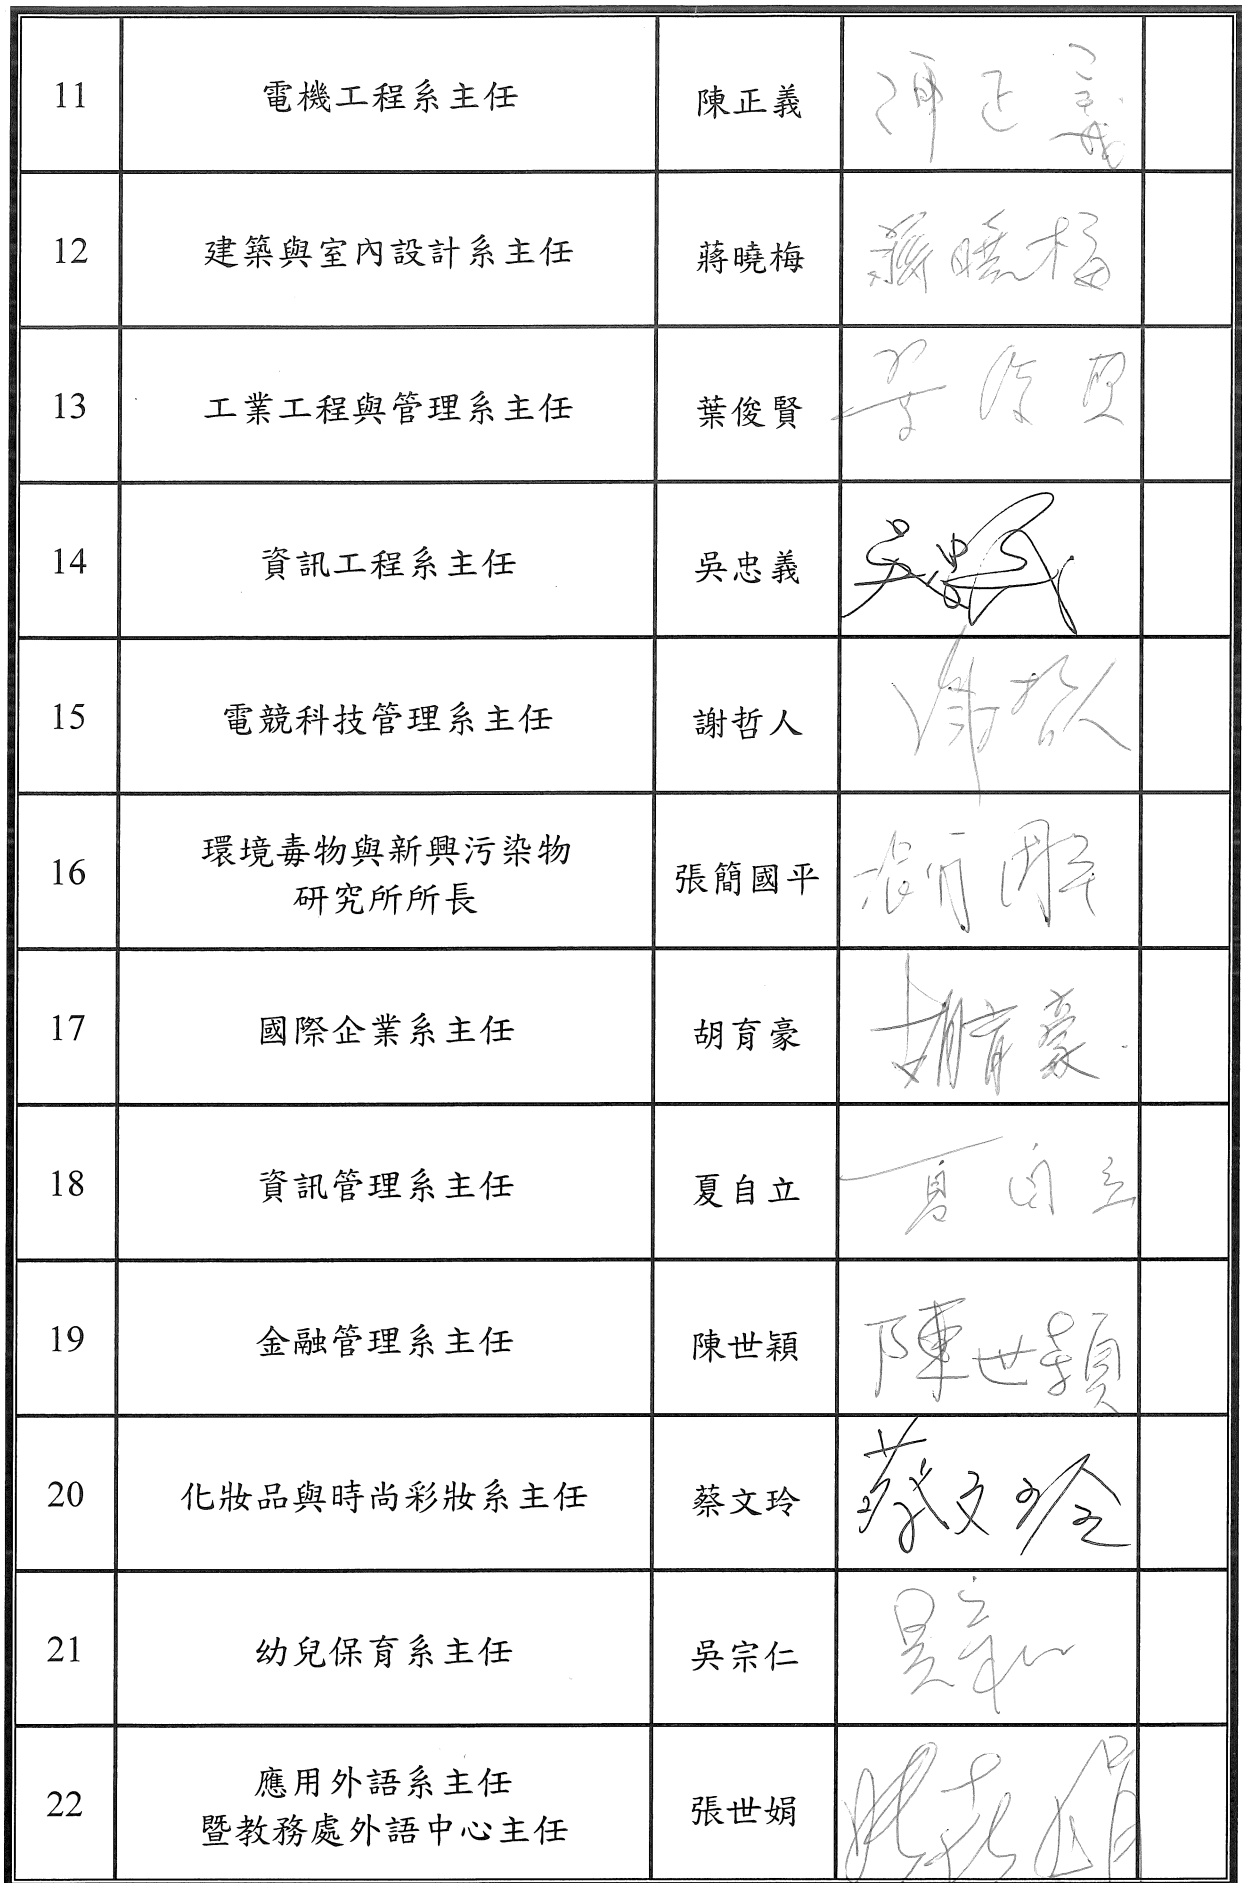 11 電機工程系主任 陳正義 陳正義
12 建築與室內設計系主任 蔣曉梅 蔣曉梅
13 工業工程與管理系主任 葉俊賢 葉俊賢
14 資訊工程系主任 吳忠義 吳忠義
15 電競科技管理系主任 謝哲人 謝哲人
16 環境毒物與新興污染物
研究所所長 張簡國平
17 國際企業系主任 胡育豪 胡育豪
18 資訊管理系主任 夏自立 夏自立
19 金融管理系主任 陳世穎 陳世穎
20 化妝品與時尚彩妝系主任 蔡文玲 蔡文玲
21 幼兒保育系主任 吳宗仁
22 應用外語系主任
暨教務處外語中心主任 張世娟